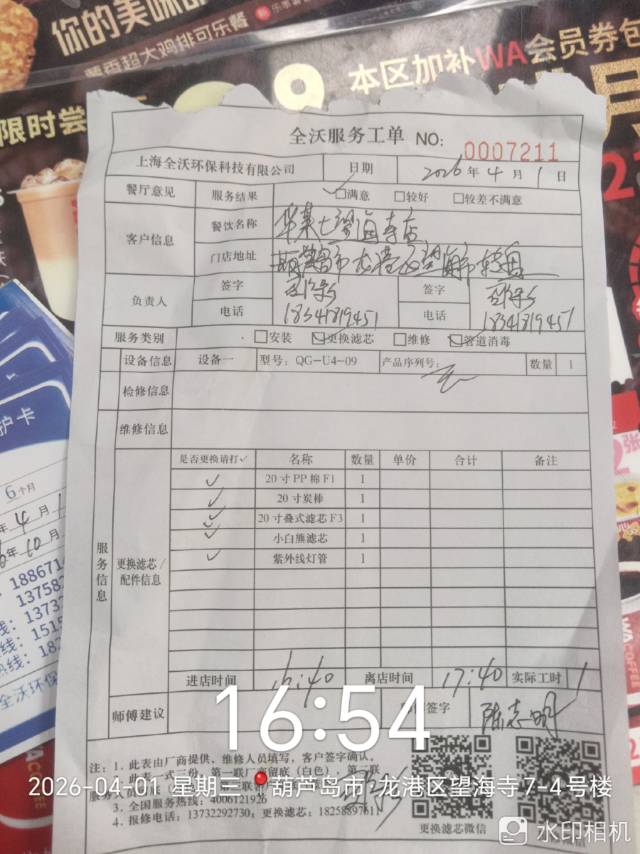 你的美味
本区加补WA会员券包
限时尝
全沃服务工单 NO: 0007211
上海全沃环保科技有限公司 日期 2026年4月1日
餐厅意见 服务结果 □满意 □较好 □较差不满意
客户信息 餐饮名称 华莱士望海寺店
门店地址
负责人 签字 签字
电话 18341819451 电话 18341819451
服务类别 □安装 ☑更换滤芯 □维修 ☑管道消毒
设备信息 设备一 型号: QG-U4-09 产品序列号: 无 数量 1
检修信息
维修信息
服务信息
更换滤芯/配件信息
是否更换请打✓ 名称 数量 单价 合计 备注
✓ 20寸PP棉F1 1
✓ 20寸炭棒 1
✓ 20寸叠式滤芯F3 1
✓ 小白熊滤芯 1
✓ 紫外线灯管 1
进店时间 16:40 离店时间 17:40 实际工时 1
师傅建议 签字 陈志明
16:54
注: 1. 此表由厂商提供、维修人员填写, 客户签字确认。
2026-04-01 星期三 葫芦岛市·龙港区望海寺7-4号楼
3. 全国服务热线: 4006121926
4. 报修电话: 13732292730; 18258897611
更换滤芯微信
水印相机
护卡
6个月
年4月1
年10月
18867
1375
1373
1515
全沃环保